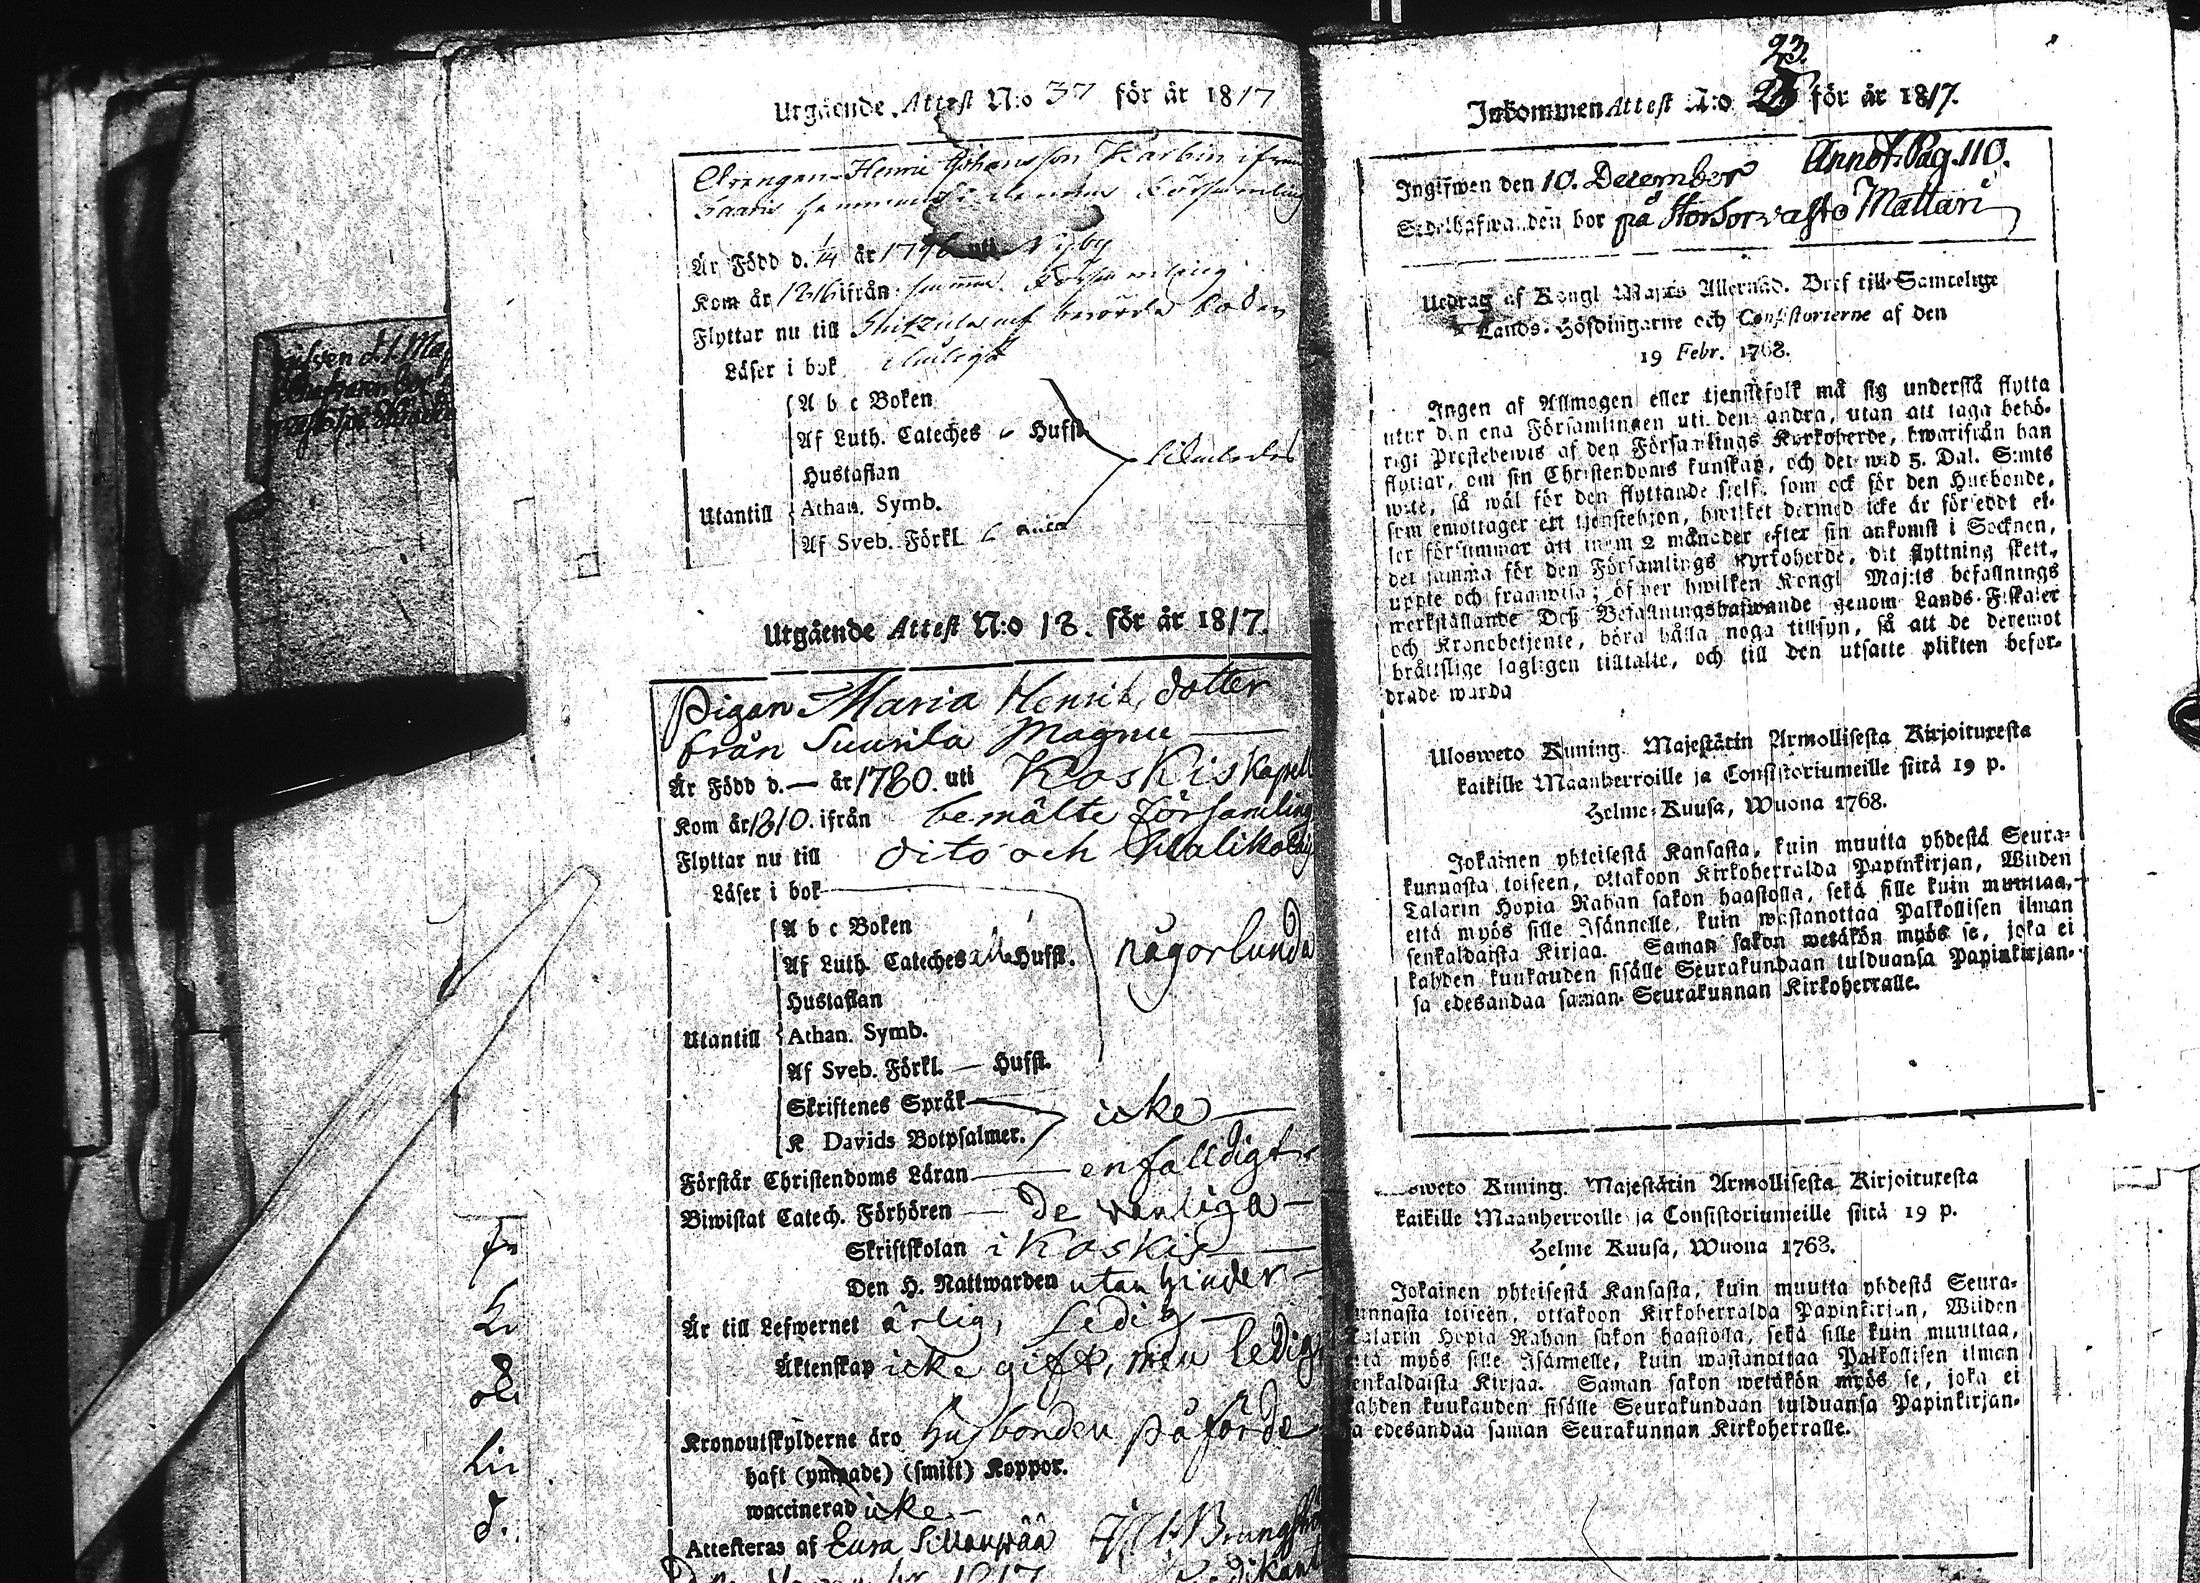 Utgående Attest N:o 37 för år 1817
Drängen Henric Johansson Karbin ifrån
Saaris hemman i denna Församling
Är Född d. 1/4 år 1796 uti Nyby
Kom år 1816 ifrån samma Församling
Flyttar nu till
Läser i bok
A b c Boken
Af Luth. Cateches Hufst.
Hustaflan
Utantill Athan. Symb.
Af Sveb. Förkl.
Utgående Attest N:o 18. för år 1817.
Pigan Maria Henriksdotter
från Suurila Magnu
Är Född d. — år 1780. uti Koskis Kapell
Kom år 1810. ifrån bemälte Församling
Flyttar nu till dito och
Läser i bok
A b c Boken
Af Luth. Cateches alla Hufst. någorlunda
Hustaflan
Utantill Athan. Symb.
Af Sveb. Förkl. — Hufst.
Skriftenes Språk
K Davids Botpsalmer. icke
Förstår Christendoms Läran enfalldigt
Biwistat Catech. Förhören — de vanliga
Skriftskolan i Koskis
Den H. Nattwarden utan hinder
Är till Lefwernet ärlig, Ledig
Äktenskap icke gift, men ledig
Kronoutskylderne äro husbonden påförde
haft (ympade) (smitt) Koppor.
waccinerad icke
Attesteras af Eura Sillanpää
1817
23.
Inkommen Attest N:o 25 för år 1817.
Ingifwen den 10. December Annot. Pag. 110.
Sedelhafwanden bor på Storsorvasto Mattari
Utdrag af Kongl Maj:ts Allernåd. Bref till Samtelige
Lands-Höfdingarne och Consistorierne af den
19 Febr. 1768.
Ingen af Allmogen eller tjenstefolk må sig understå flytta
utur den ena Församlingen uti den andra, utan att taga behö-
rigt Prestebewis af den Församlings Kyrkoherde, hwarifrån han
flyttar, om sin Christendoms kunskap, och det wid 5. Dal. S:mts
wite, så wäl för den flyttande sielf, som ock för den Husbonde,
som emottager ett tjenstehjon, hwilket dermed icke är försedt el-
ler försummar att inom 2 månader efter sin ankomst i Socknen,
det samma för den Församlings Kyrkoherde, dit flyttning skett,
uppte och framwisa; öfwer hwilken Kongl Maj:ts befallnings
werkställande Deß Befallningshafwande genom Lands-Fiskaler
och Kronobetjente, böra hålla noga tillsyn, så att de deremot
bråttslige lagligen tilltalte, och till den utsatte plikten befor-
drade warda
Ulosweto Kuning. Majestätin Armollisesta Kirjoituxesta
kaikille Maanherroille ja Consistoriumeille siitä 19 p.
Helme-Kuusa, Wuona 1768.
Jokainen yhteisestä Kansasta, kuin muutta yhdestä Seura-
kunnasta toiseen, ottakoon Kirkoherralda Papinkirjan, Wiiden
Talarin Hopia Rahan sakon haastolla, sekä sille kuin muuttaa,
että myös sille Isännelle, kuin wastanottaa Palkollisen ilman
senkaldaista Kirjaa. Saman sakon wetäkön myös se, joka ei
kahden kuukauden sisälle Seurakundaan tulduansa Papinkirjan-
sa edesandaa saman Seurakunnan Kirkoherralle.
sweto Kuning. Majestätin Armollisesta Kirjoituxesta
kaikille Maanherroille ja Consistoriumeille siitä 19 p.
Helme Kuusa, Wuona 1768.
Jokainen yhteisestä Kansasta, kuin muutta yhdestä Seura-
unnasta toiseen, ottakoon Kirkoherralda Papinkirjan, Wiiden
Talarin Hopia Rahan sakon haastolla, sekä sille kuin muuttaa,
että myös sille Isännelle, kuin wastanottaa Palkollisen ilman
enkaldaista Kirjaa. Saman sakon wetäkön myös se, joka ei
ahden kuukauden sisälle Seurakundaan tulduansa Papinkirjan-
a edesandaa saman Seurakunnan Kirkoherralle.